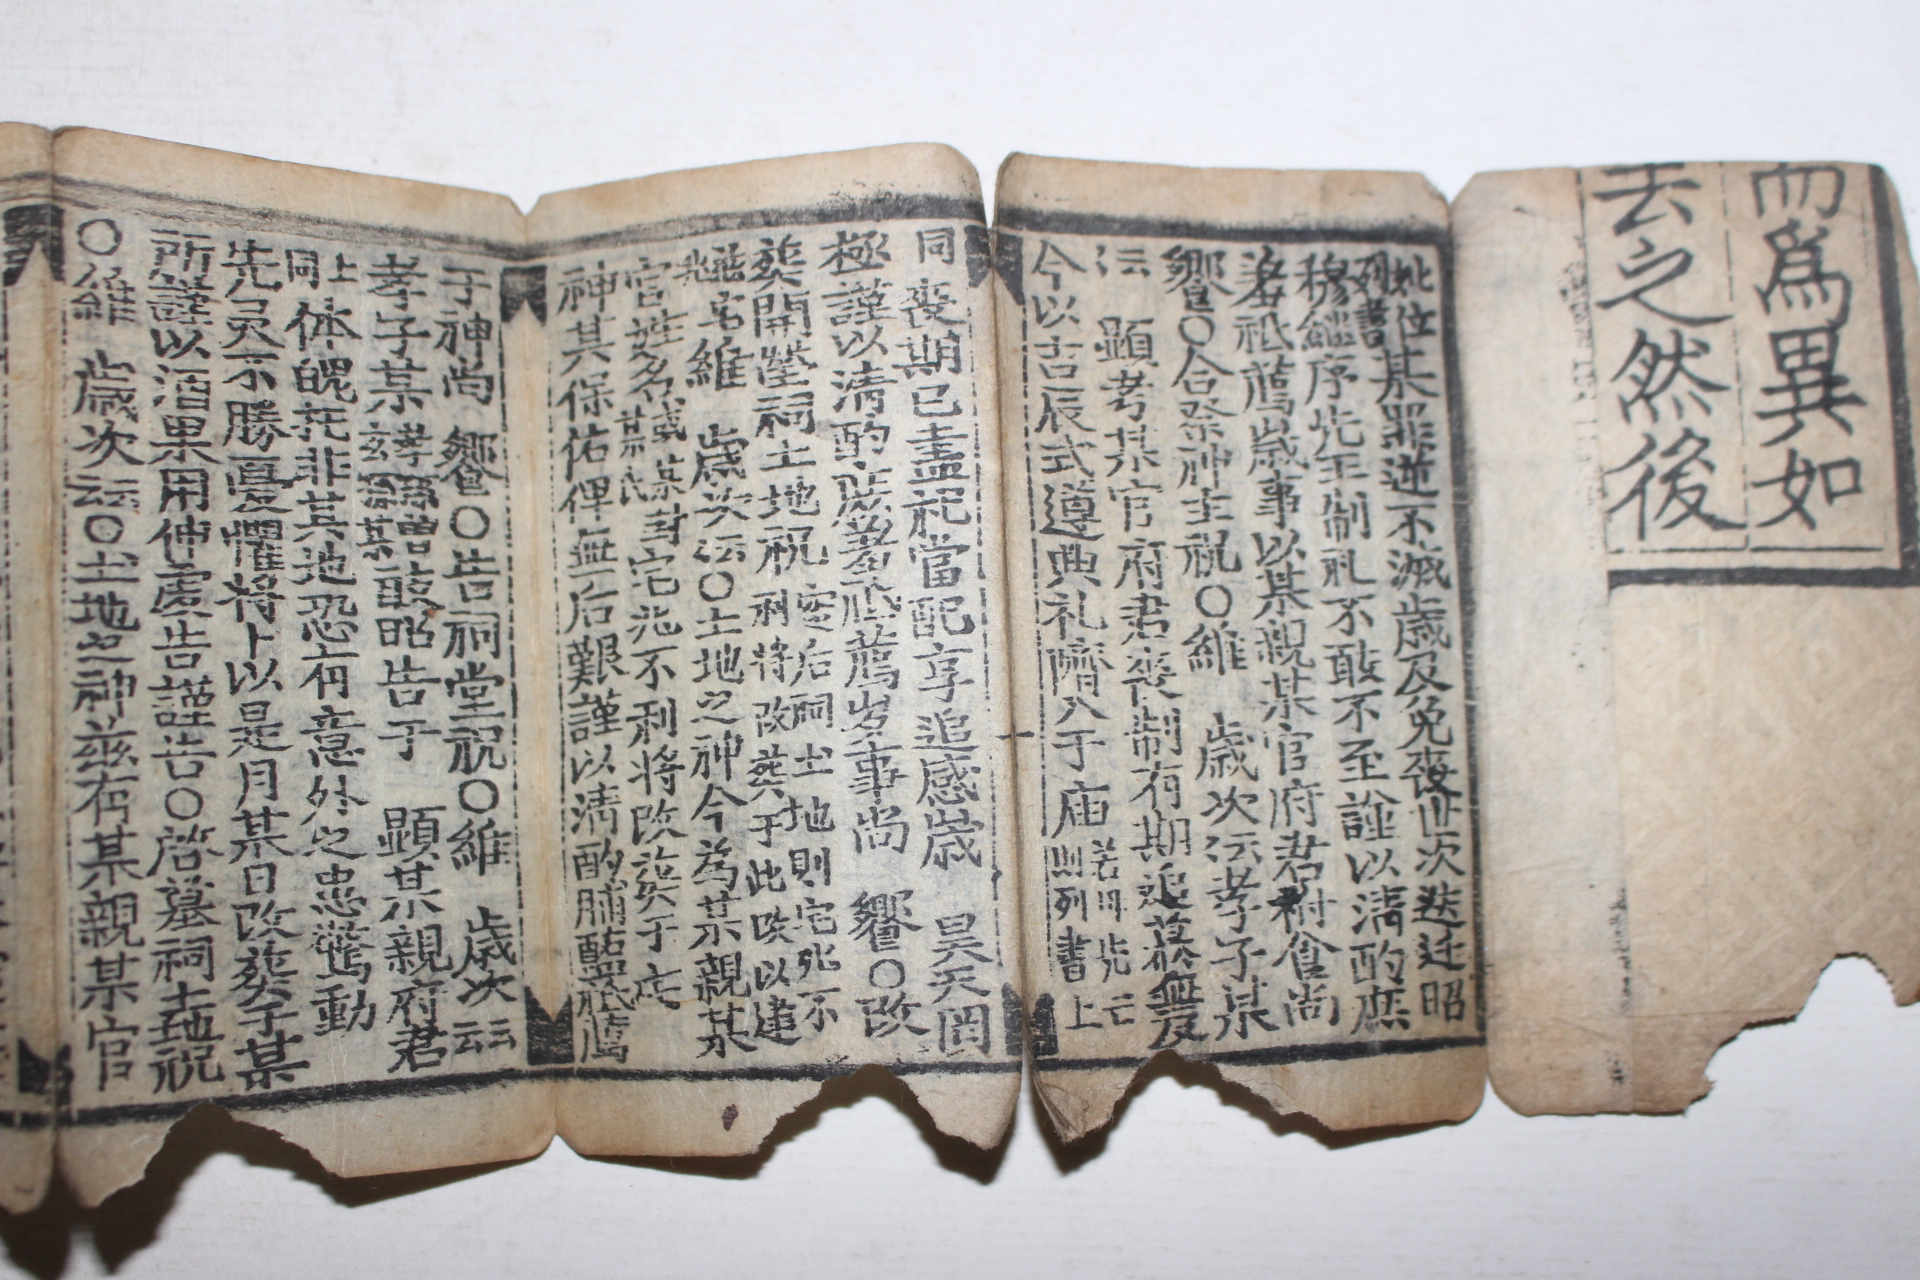 而爲異如
去之然後
妣位某罪逆不滅歲及免喪世次迭迁昭
列書
穆繼序先王制礼不敢不至謹以淸酌庶
羞祗薦歲事以某親某官府君祔食尚
饗○合祭神主祝○維 歲次云孝子某
云 顯考某官府君喪制有期追慕無及
今以吉辰式遵典礼隮入于庙
若川先云
則列書上
同 喪期已盡祀當配享追感歲 昊天罔
極謹以淸酌庶羞祗薦岁事尚 饗○改
葬開塋祠土地祝
后祠土地則宅兆不
利將改葬于此以建
兆 維 歲次云○土地之神今為某親某
官姓名或某封宅兆不利將改葬于
某氏
神其保佑俾無后艱謹以淸酌脯醢祗薦
于神尚 饗○告祠堂祝○維 歲次云云
孝子某 敢昭告于 顯某親府君
上同 体魄托非其地恐有意外之患驚動
先灵不勝憂懼將卜以是月某日改葬于某
所謹以酒果用伸虔告謹告○啓墓祠土地祝
○維 歲次云云○土地之神玆有某親某官